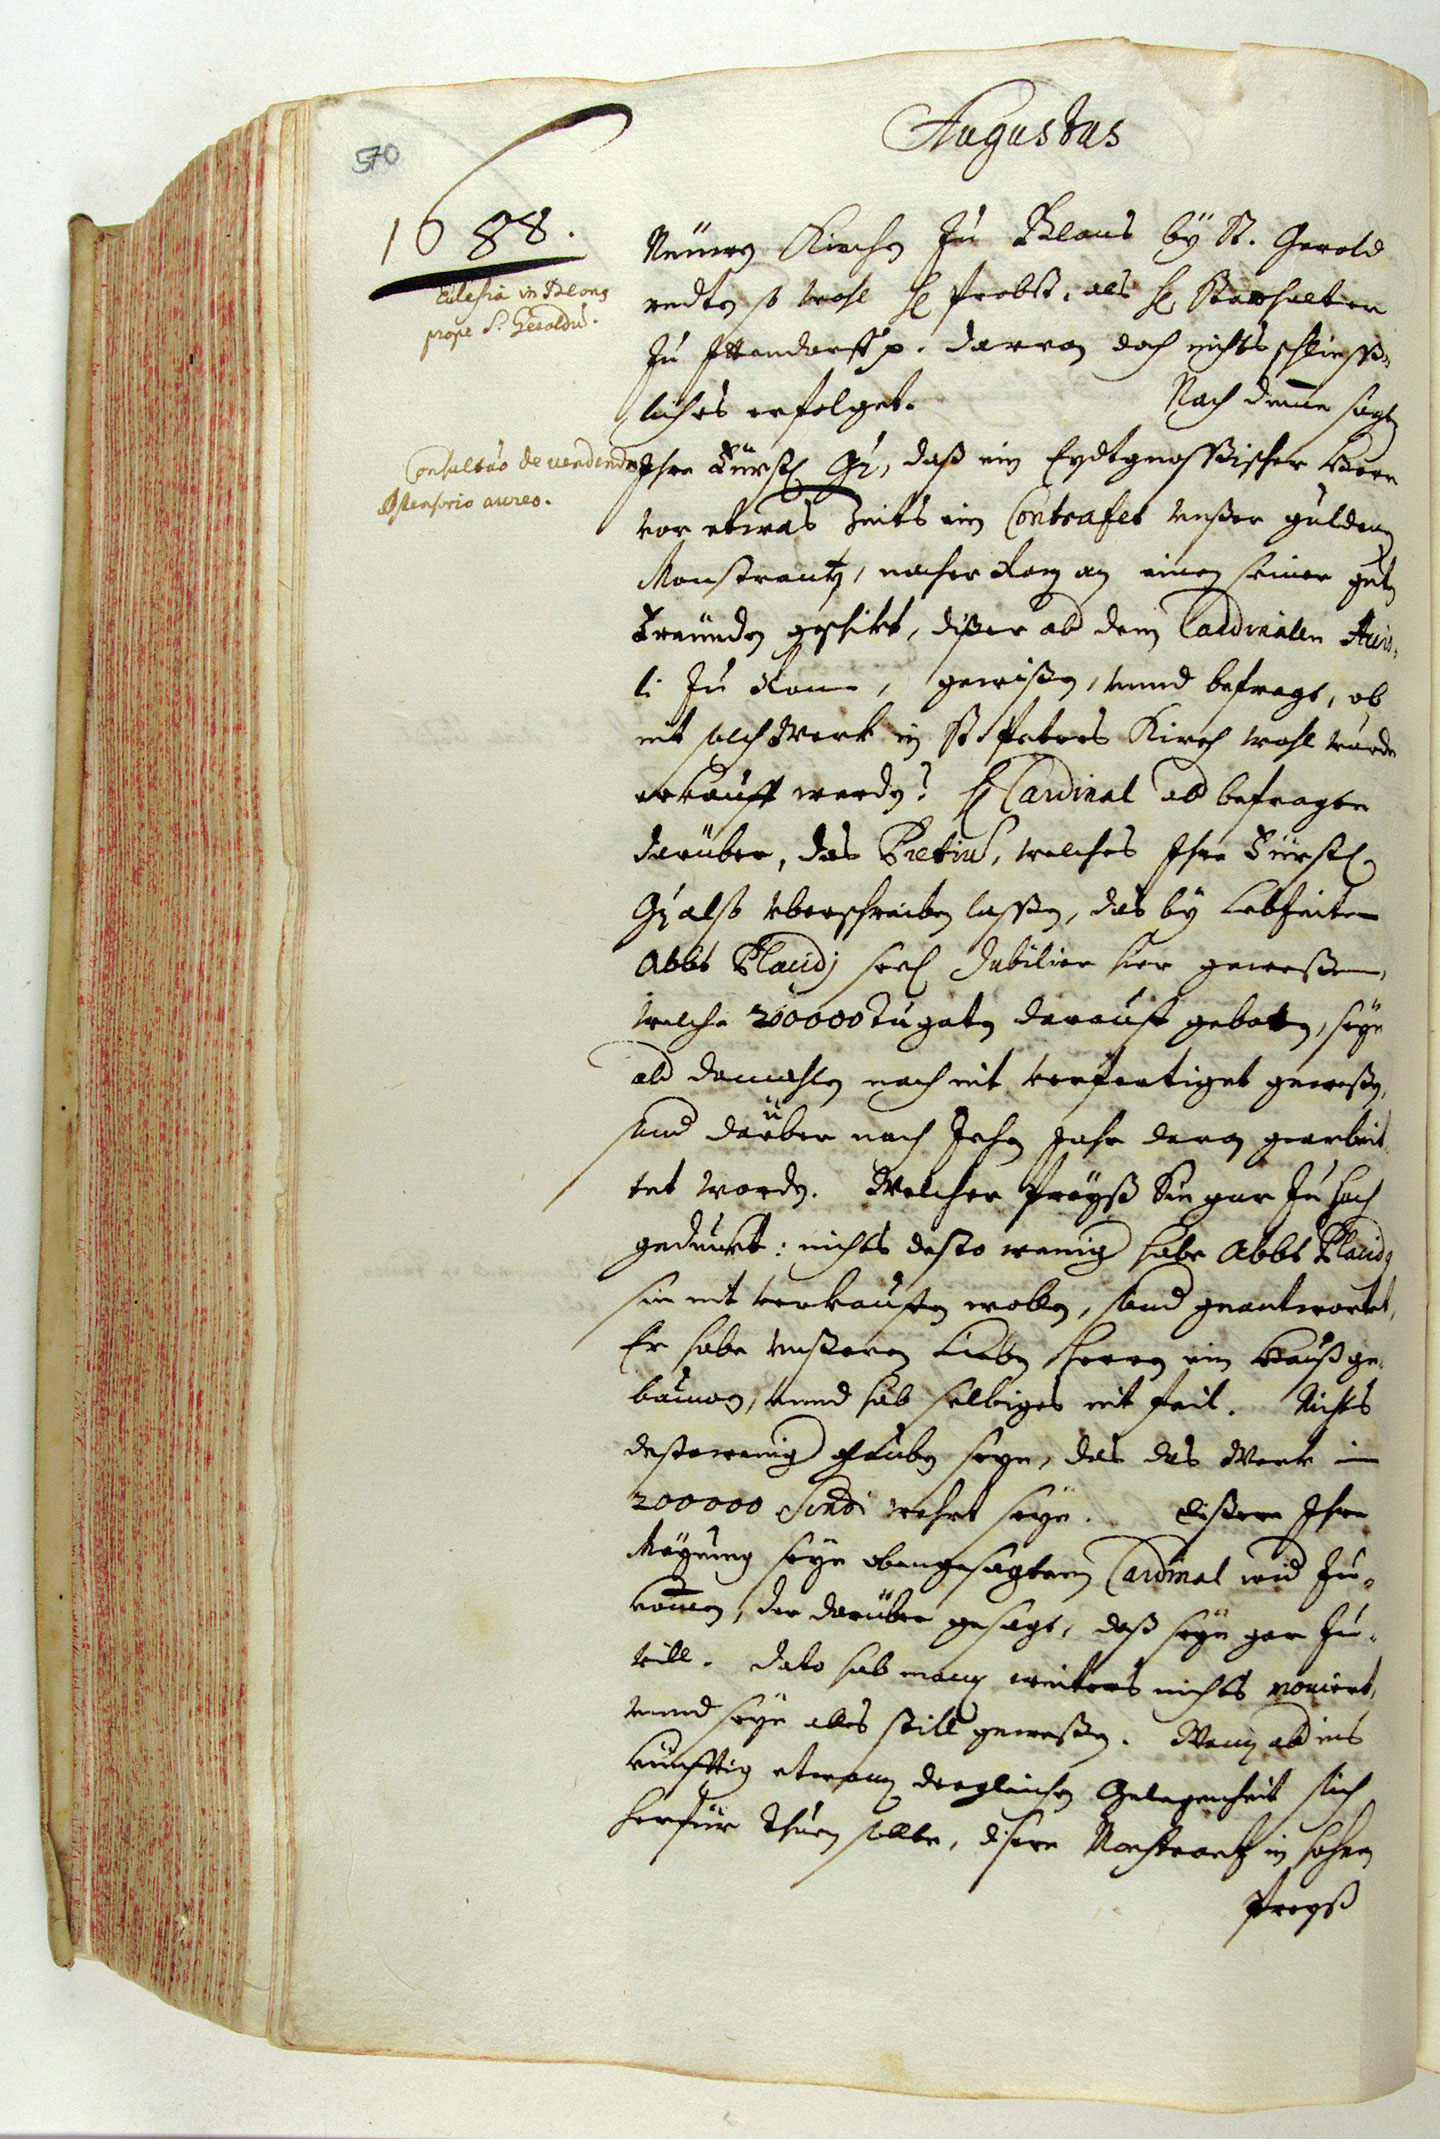 570
Augustus
1688.
Ecclesia in Blons
prope S. Geroldũ.
Neüwen Kirchen zu Blons by St. Gerold
redten so wohl H. Probst, als H. Statthalter
zu Ittendorff p. darvon doch nichts schliess-
liches erfolget. Nach deme sagten
Consultatio de vendendo
Ostensorio aureo.
Ihre Fürstl. Gn, daß ein Eydtgnossischer Herr
vor etwas Zeits ein Contrafet unßer guldenen
Monstrantz, nacher Rom an einen seiner guten
Freünden geschikt, dißer ab dem Cardinalen
zu Rom, gewißen, unnd befragt, ob
nit solch Werk in St. Peters Kirch wohl wurde
erkaufft werden? H. Cardinal ab befragte
darüber, das Pretium, welches Ihre Fürstl.
Gn also überschreiben lassen, das by Lebzeiten
Abbt Placidj seel. Jubilier hier geweßen,
welche 200000 Dugaten darauf gebotten, seye
ab damahlen noch nit verfertiget geweßen,
sund darüber noch zehen Jahr daran gearbeit-
tet worden. Welcher Preyß Sie gar zu hoch
gedunkt: nichts desto wenig habe Abbt Placidj
sie nit verkauffen wollen, sund geantwortet,
Er habe unßeren Lieben Herren ein Hauß ge-
bauwen, unnd hab selbiges nit feil. Nichts
destowenig glauben seye, das das Werk in
200000 Scudi wehrt seye. Dißere Ihre
Meynung seye obengesagtem Cardinal wid zu-
kommen, der darüber gesagt, daß seye gar zu
vill. Dato hab man weiters nichts moviert,
unnd seye alles still geweßen. Wann ab ins
künfftig etwann dergleichen Gelegenheit sich
herfür thuen sollte, disere Monstrantz in hohem
Preyß